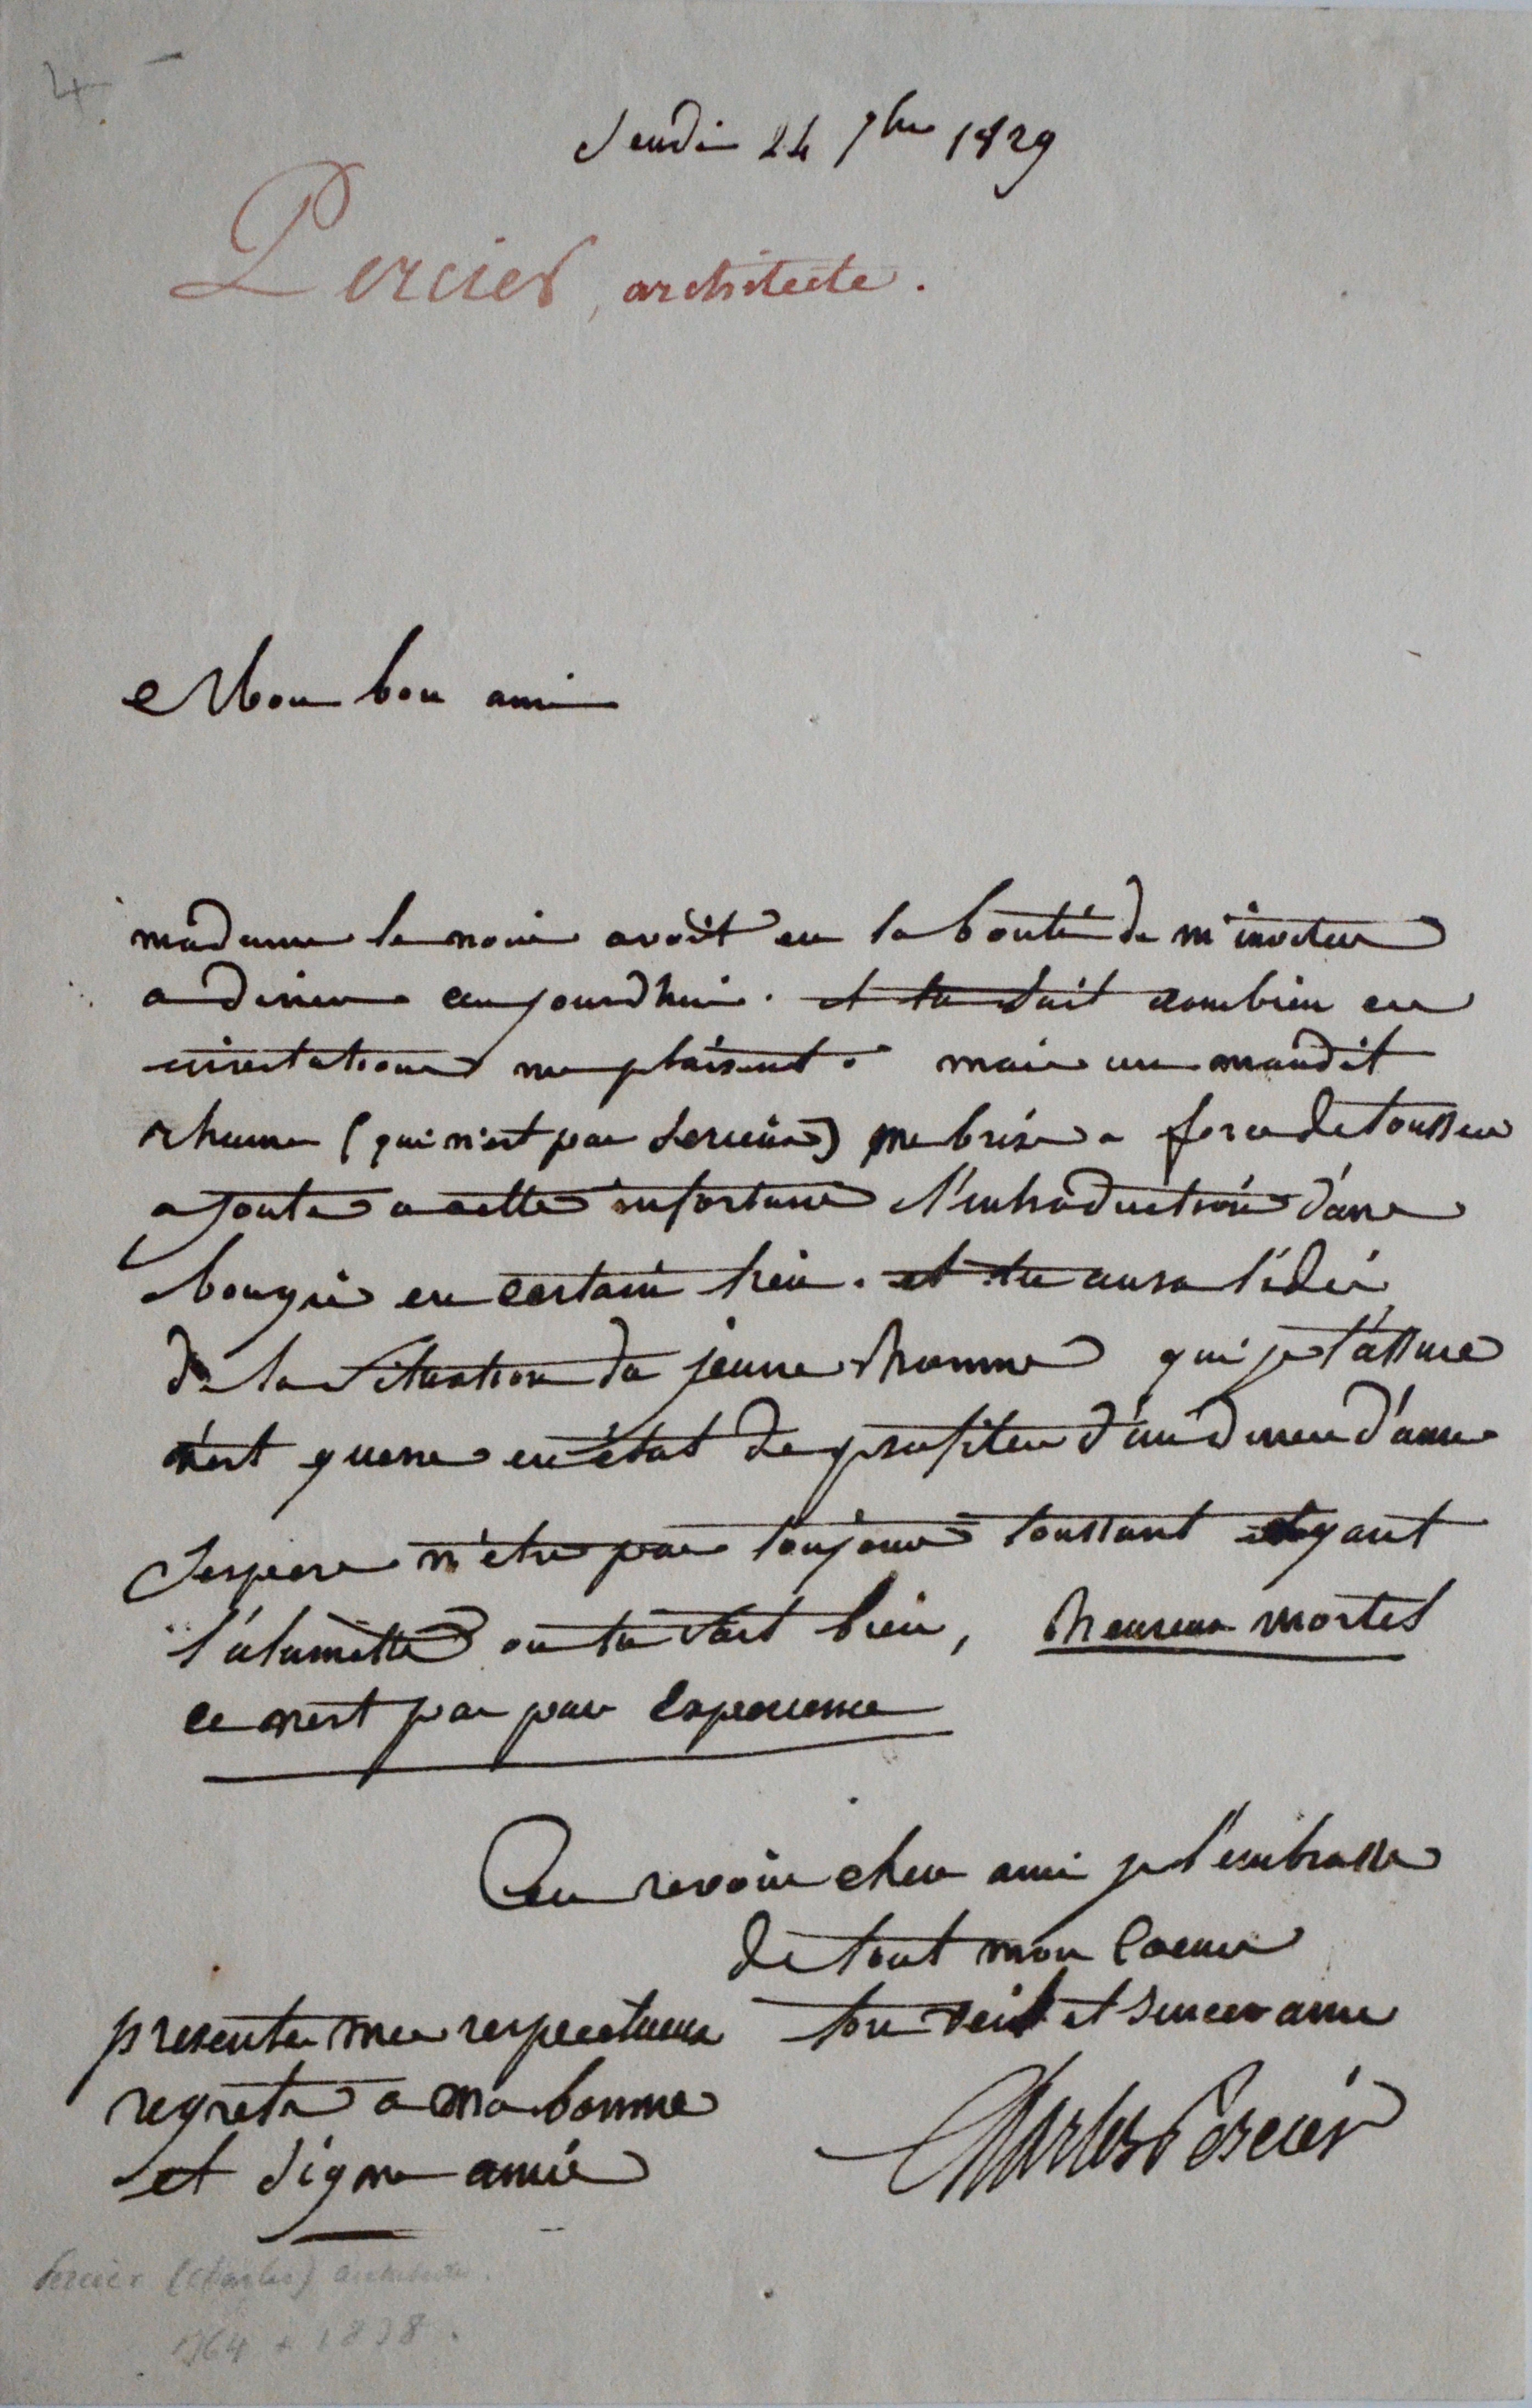 4
Jeudi 24 7bre 1829
Percier, architecte.
Mon bon ami
madame le noir avoit eu la bonté de m'inviter
a diner aujourdhui. et tu sait combien ces
invitations me plaisent. mais un maudit
rhume (qui n'est pas serieux) me brise a force de tousser
ajoute a cette infortune l'introduction d'une
bougie en certain lieu. et tu auras l'idée
de la situation du jeune homme qui je t'assure
n'est guere en état de profiter d'un diner d'amis
J'espere n'etre pas toujours toussant et ayant
l'alumette ou tu sait bien, heureux mortel
ce n'est pas par experience
Au revoir cher ami je t'embrasse
de tout mon coeur
ton vieil et sincer ami
Charles Percier
presente mes respectueux
regrets a ma bonne
et digne amie
Percier (Charles) architecte.
1764 + 1838.